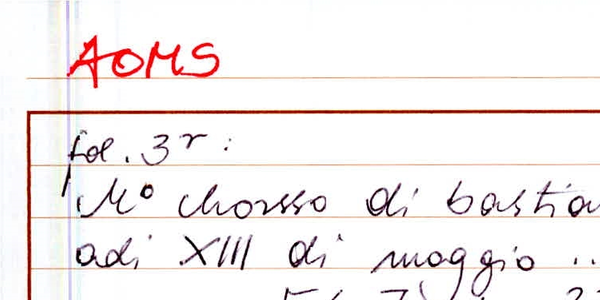 AOMS
fol. 3r:
Mº chorsso di bastia
adi XIII di maggio ..